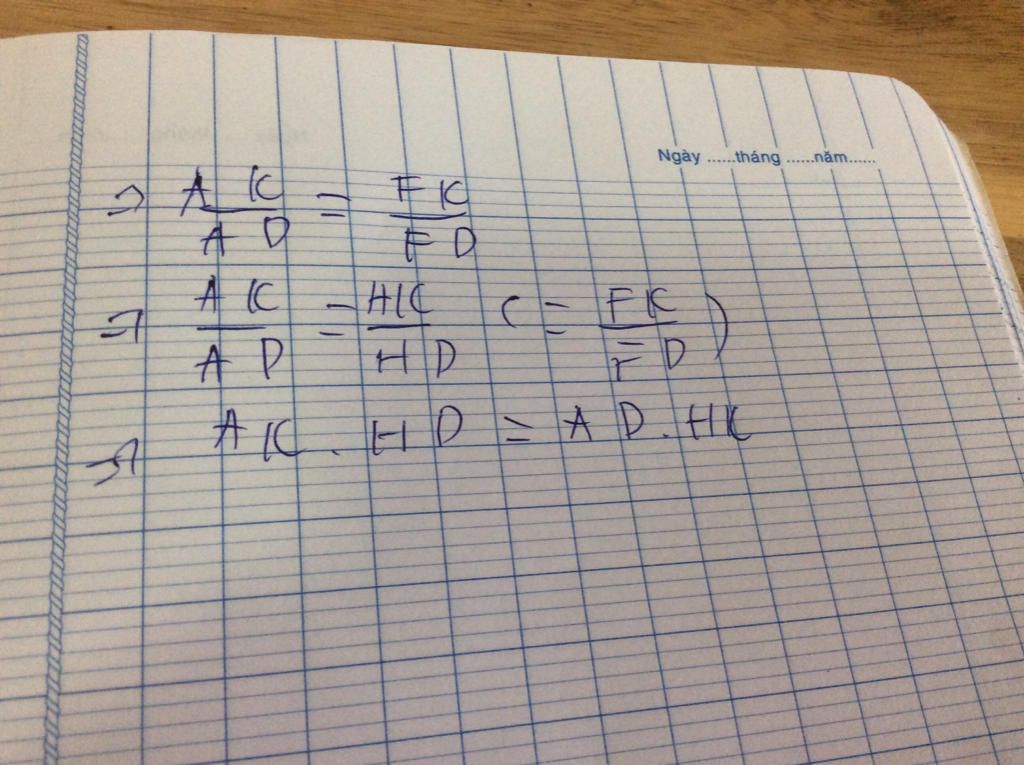 Ngày ......tháng ......năm......
=> AK/AD = FK/FD
=> AK/AD = HK/HD (= FK/FD)
=> AK . HD = AD . HK